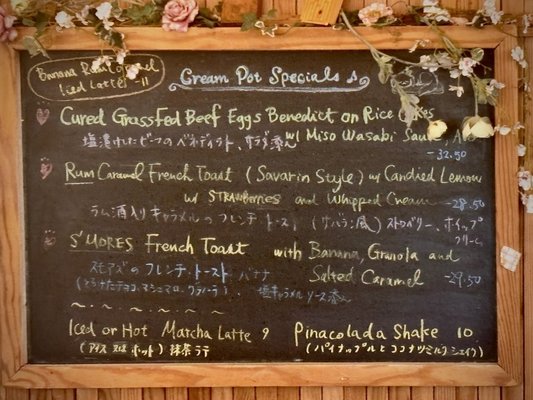 Banana Rum Caramel
Iced Latte! - 11
Cream Pot Specials
Cured Grassfed Beef Eggs Benedict on Rice Cakes
w/ Miso Wasabi Sauce,
- 32.50
Rum Caramel French Toast (Savarin Style) w/ Candied Lemon
w/ Strawberries and Whipped Cream - 28.50
ラム酒入りキャラメルのフレンチトースト (サバラン風) ストロベリー、ホイップ
クリーム
S'MORES French Toast with Banana, Granola and
Salted Caramel - 29.50
スモアズのフレンチ・トースト バナナ
(とろけたチョコ、マシュマロ、グラノーラ)、塩キャラメルソース添え
Iced or Hot Matcha Latte 9 Pinacolada Shake 10
(アイス ホット) 抹茶ラテ (パイナップルとココナツミルクシェイク)